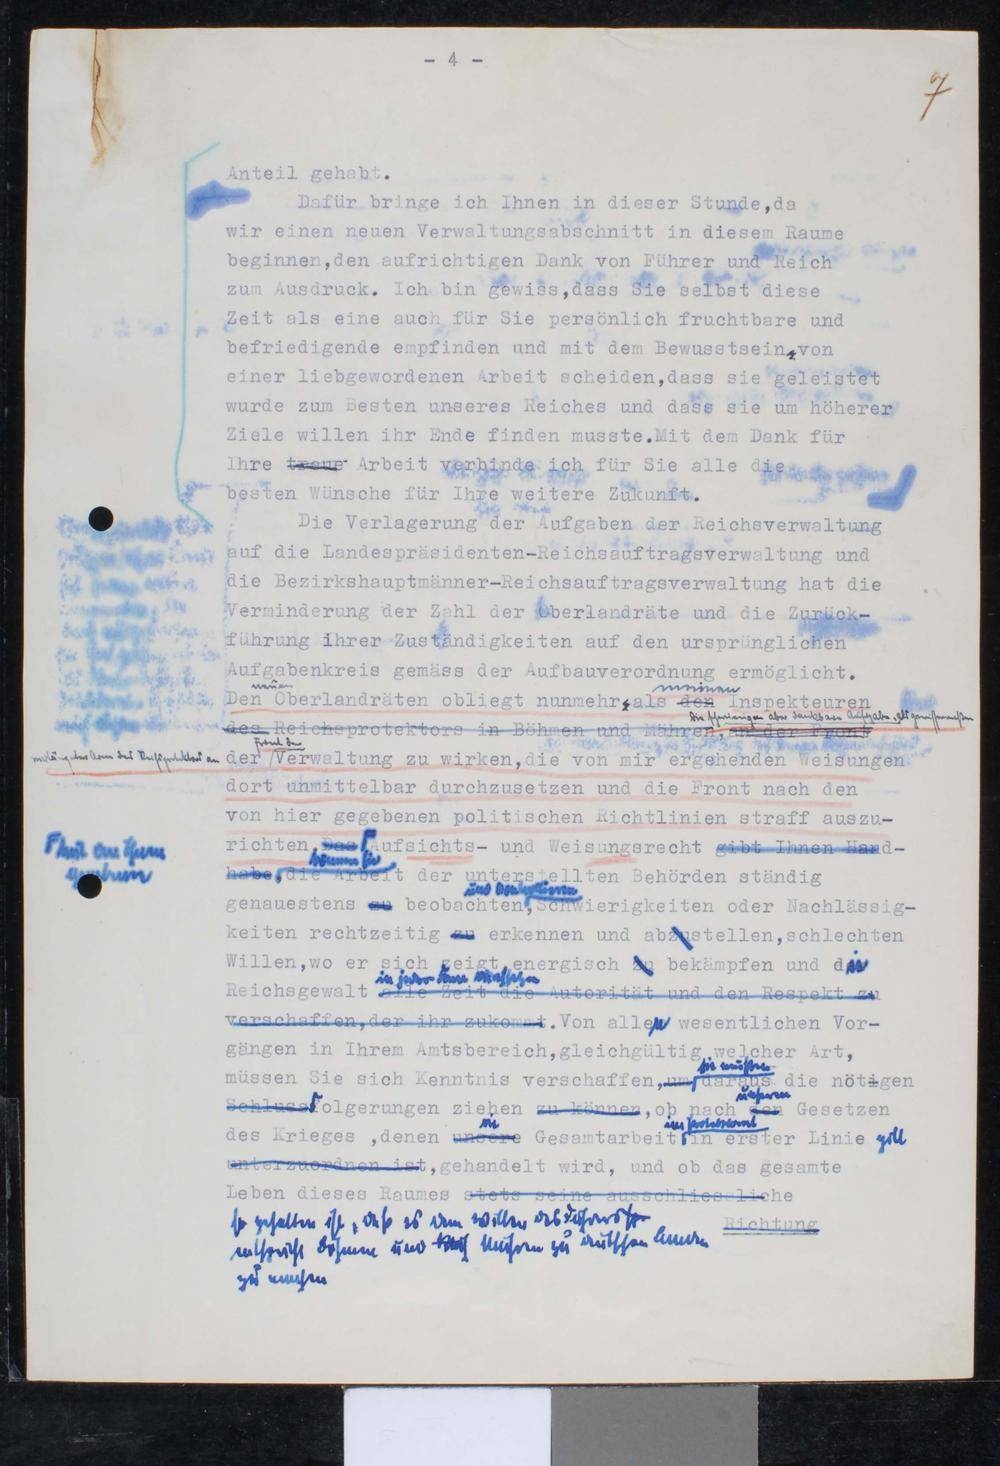 - 4 -
7
Anteil gehabt.
Dafür bringe ich Ihnen in dieser Stunde,da
wir einen neuen Verwaltungsabschnitt in diesem Raume
beginnen,den aufrichtigen Dank von Führer und Reich
zum Ausdruck. Ich bin gewiss,dass Sie selbst diese
Zeit als eine auch für Sie persönlich fruchtbare und
befriedigende empfinden und mit dem Bewusstsein,von
einer liebgewordenen Arbeit scheiden,dass sie geleistet
wurde zum Besten unseres Reiches und dass sie um höherer
Ziele willen ihr Ende finden musste.Mit dem Dank für
Ihre treue Arbeit verbinde ich für Sie alle die
besten Wünsche für Ihre weitere Zukunft.
Die Verlagerung der Aufgaben der Reichsverwaltung
auf die Landespräsidenten-Reichsauftragsverwaltung und
die Bezirkshauptmänner-Reichsauftragsverwaltung hat die
Verminderung der Zahl der Oberlandräte und die Zurück-
führung ihrer Zuständigkeiten auf den ursprünglichen
Aufgabenkreis gemäss der Aufbauverordnung ermöglicht.
neuen meinen
Den Oberlandräten obliegt nunmehr,als den Inspekteuren
die schwierige aber dankbare Aufgabe, als
des Reichsprotektors in Böhmen und Mähren,an der Front
Front der
der Verwaltung zu wirken,die von mir ergehenden Weisungen
dort unmittelbar durchzusetzen und die Front nach den
von hier gegebenen politischen Richtlinien straff auszu-
richten.Das Aufsichts- und Weisungsrecht gibt Ihnen Hand-
können Sie
habe,die Arbeit der unterstellten Behörden ständig
und kontrollieren
genauestens zu beobachten,Schwierigkeiten oder Nachlässig-
keiten rechtzeitig zu erkennen und abzustellen,schlechten
Willen,wo er sich zeigt,energisch zu bekämpfen und die
in jeder
Reichsgewalt alle Zeit die Autorität und den Respekt zu
verschaffen,der ihr zukommt.Von allen wesentlichen Vor-
gängen in Ihrem Amtsbereich,gleichgültig welcher Art,
Sie müssen
müssen Sie sich Kenntnis verschaffen,um daraus die nötigen
unseren
Schlussfolgerungen ziehen zu können,ob nach den Gesetzen
die im Protektorat
des Krieges ,denen unsere Gesamtarbeit in erster Linie gilt
unterzuordnen ist,gehandelt wird, und ob das gesamte
Leben dieses Raumes stets seine ausschliessliche
Richtung
so gehalten ist, daß es dem Willen des Führers
entspricht Böhmen und Mähren zu deutschen Landen
zu machen